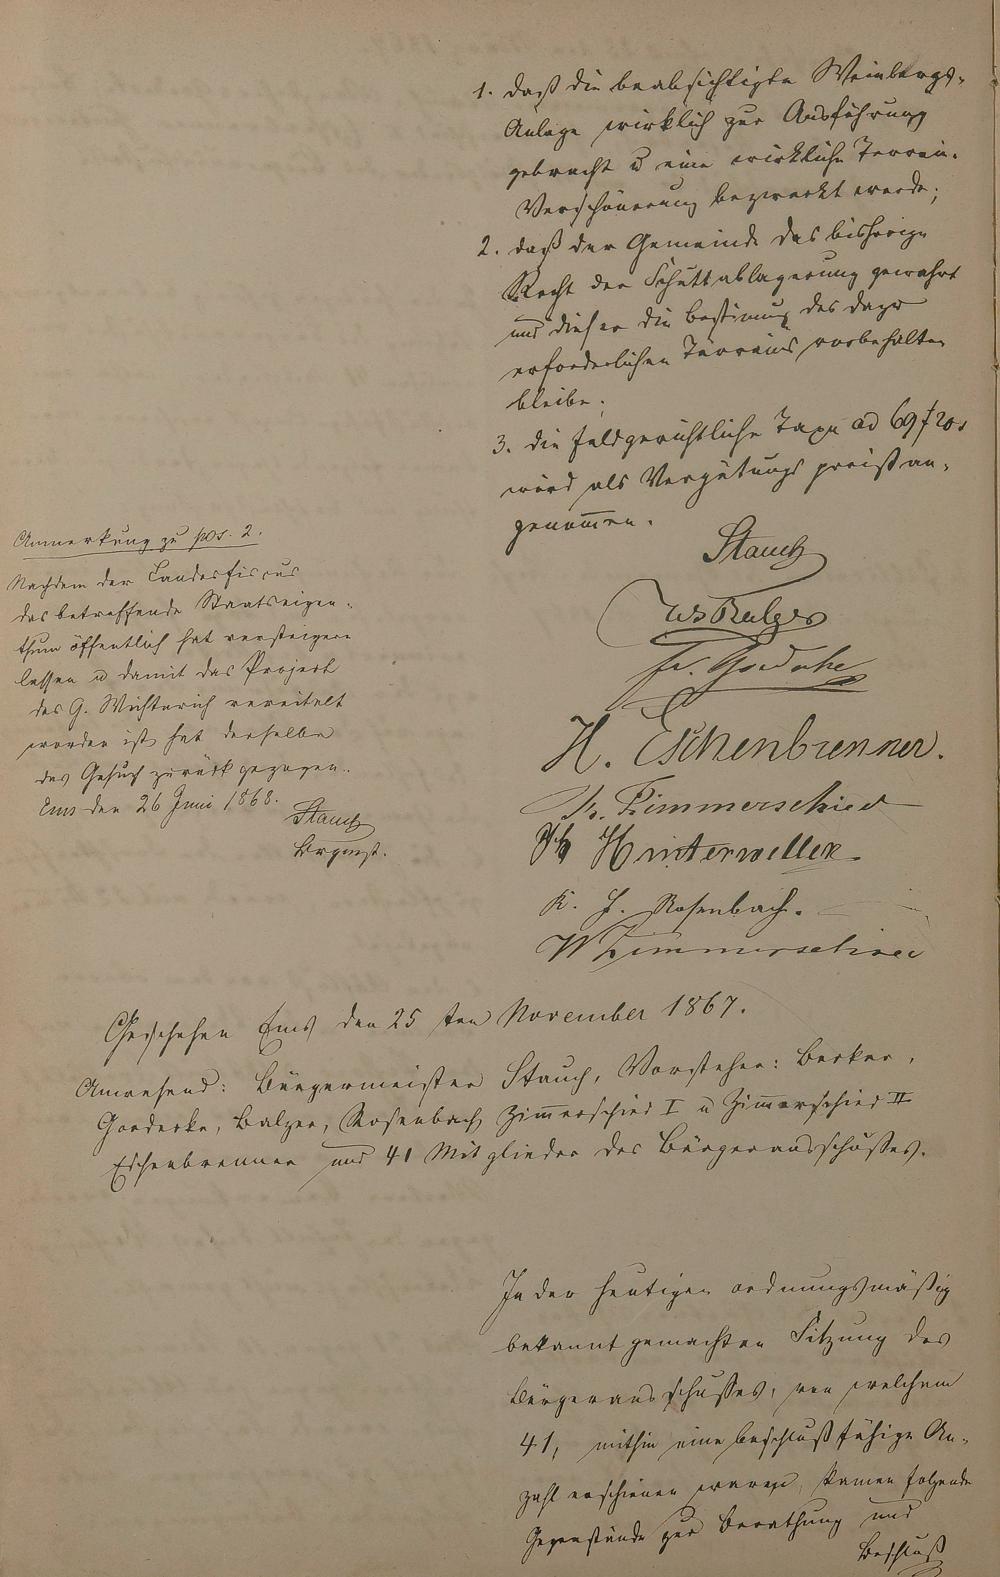 1. daß die beabsichtigte Weinbergs-
Anlage wirklich zur Ausführung
gebracht u eine wirkliche Terrain-
Verschönerung bezweckt werde;
2. daß der Gemeinde das bisherige
Recht der Schuttablagerung gewahrt
und dieser die Bestimung des dazu
erforderlichen Terrains vorbehalten
bleibe;
3. die feldgerichtliche Taxe ad 69 f 20
wird als Vergütungspreiß an-
genom̅en.
Stauch
Balzer
Fr. Goedecke
H. Eschenbrenner.
Zimmerschied
Hinterweller
K. J. Rosenbach.
W Zimmerschied
Anmerkung zu pos. 2.
Nachdem der Landesfiscus
das betreffende Staatseigen-
thum öffentlich hat versteigern
lassen u damit das Project
des G. Wichterich vereitelt
worden ist, hat derselbe
das Gesuch zurückgezogen.
Ems den 26 Juni 1868.
Stauch
Brgmst.
Geschehen Ems den 25 ten November 1867.
Anwesend: Bürgermeister Stauch, Vorsteher: Becker,
Goedecke, Balzer, Rosenbach, Zim̅erschied I u Zim̅erschied II
Eschenbrenner und 41 Mitglieder des Bürgerausschußes.
In der heutigen ordnungsmäßig
bekannt gemachten Sitzung des
Bürgerausschußes, von welchem
41, mithin eine beschlußfähige An-
zahl erschienen waren, kamen folgende
Gegenstände zur Berathung und
Beschluß